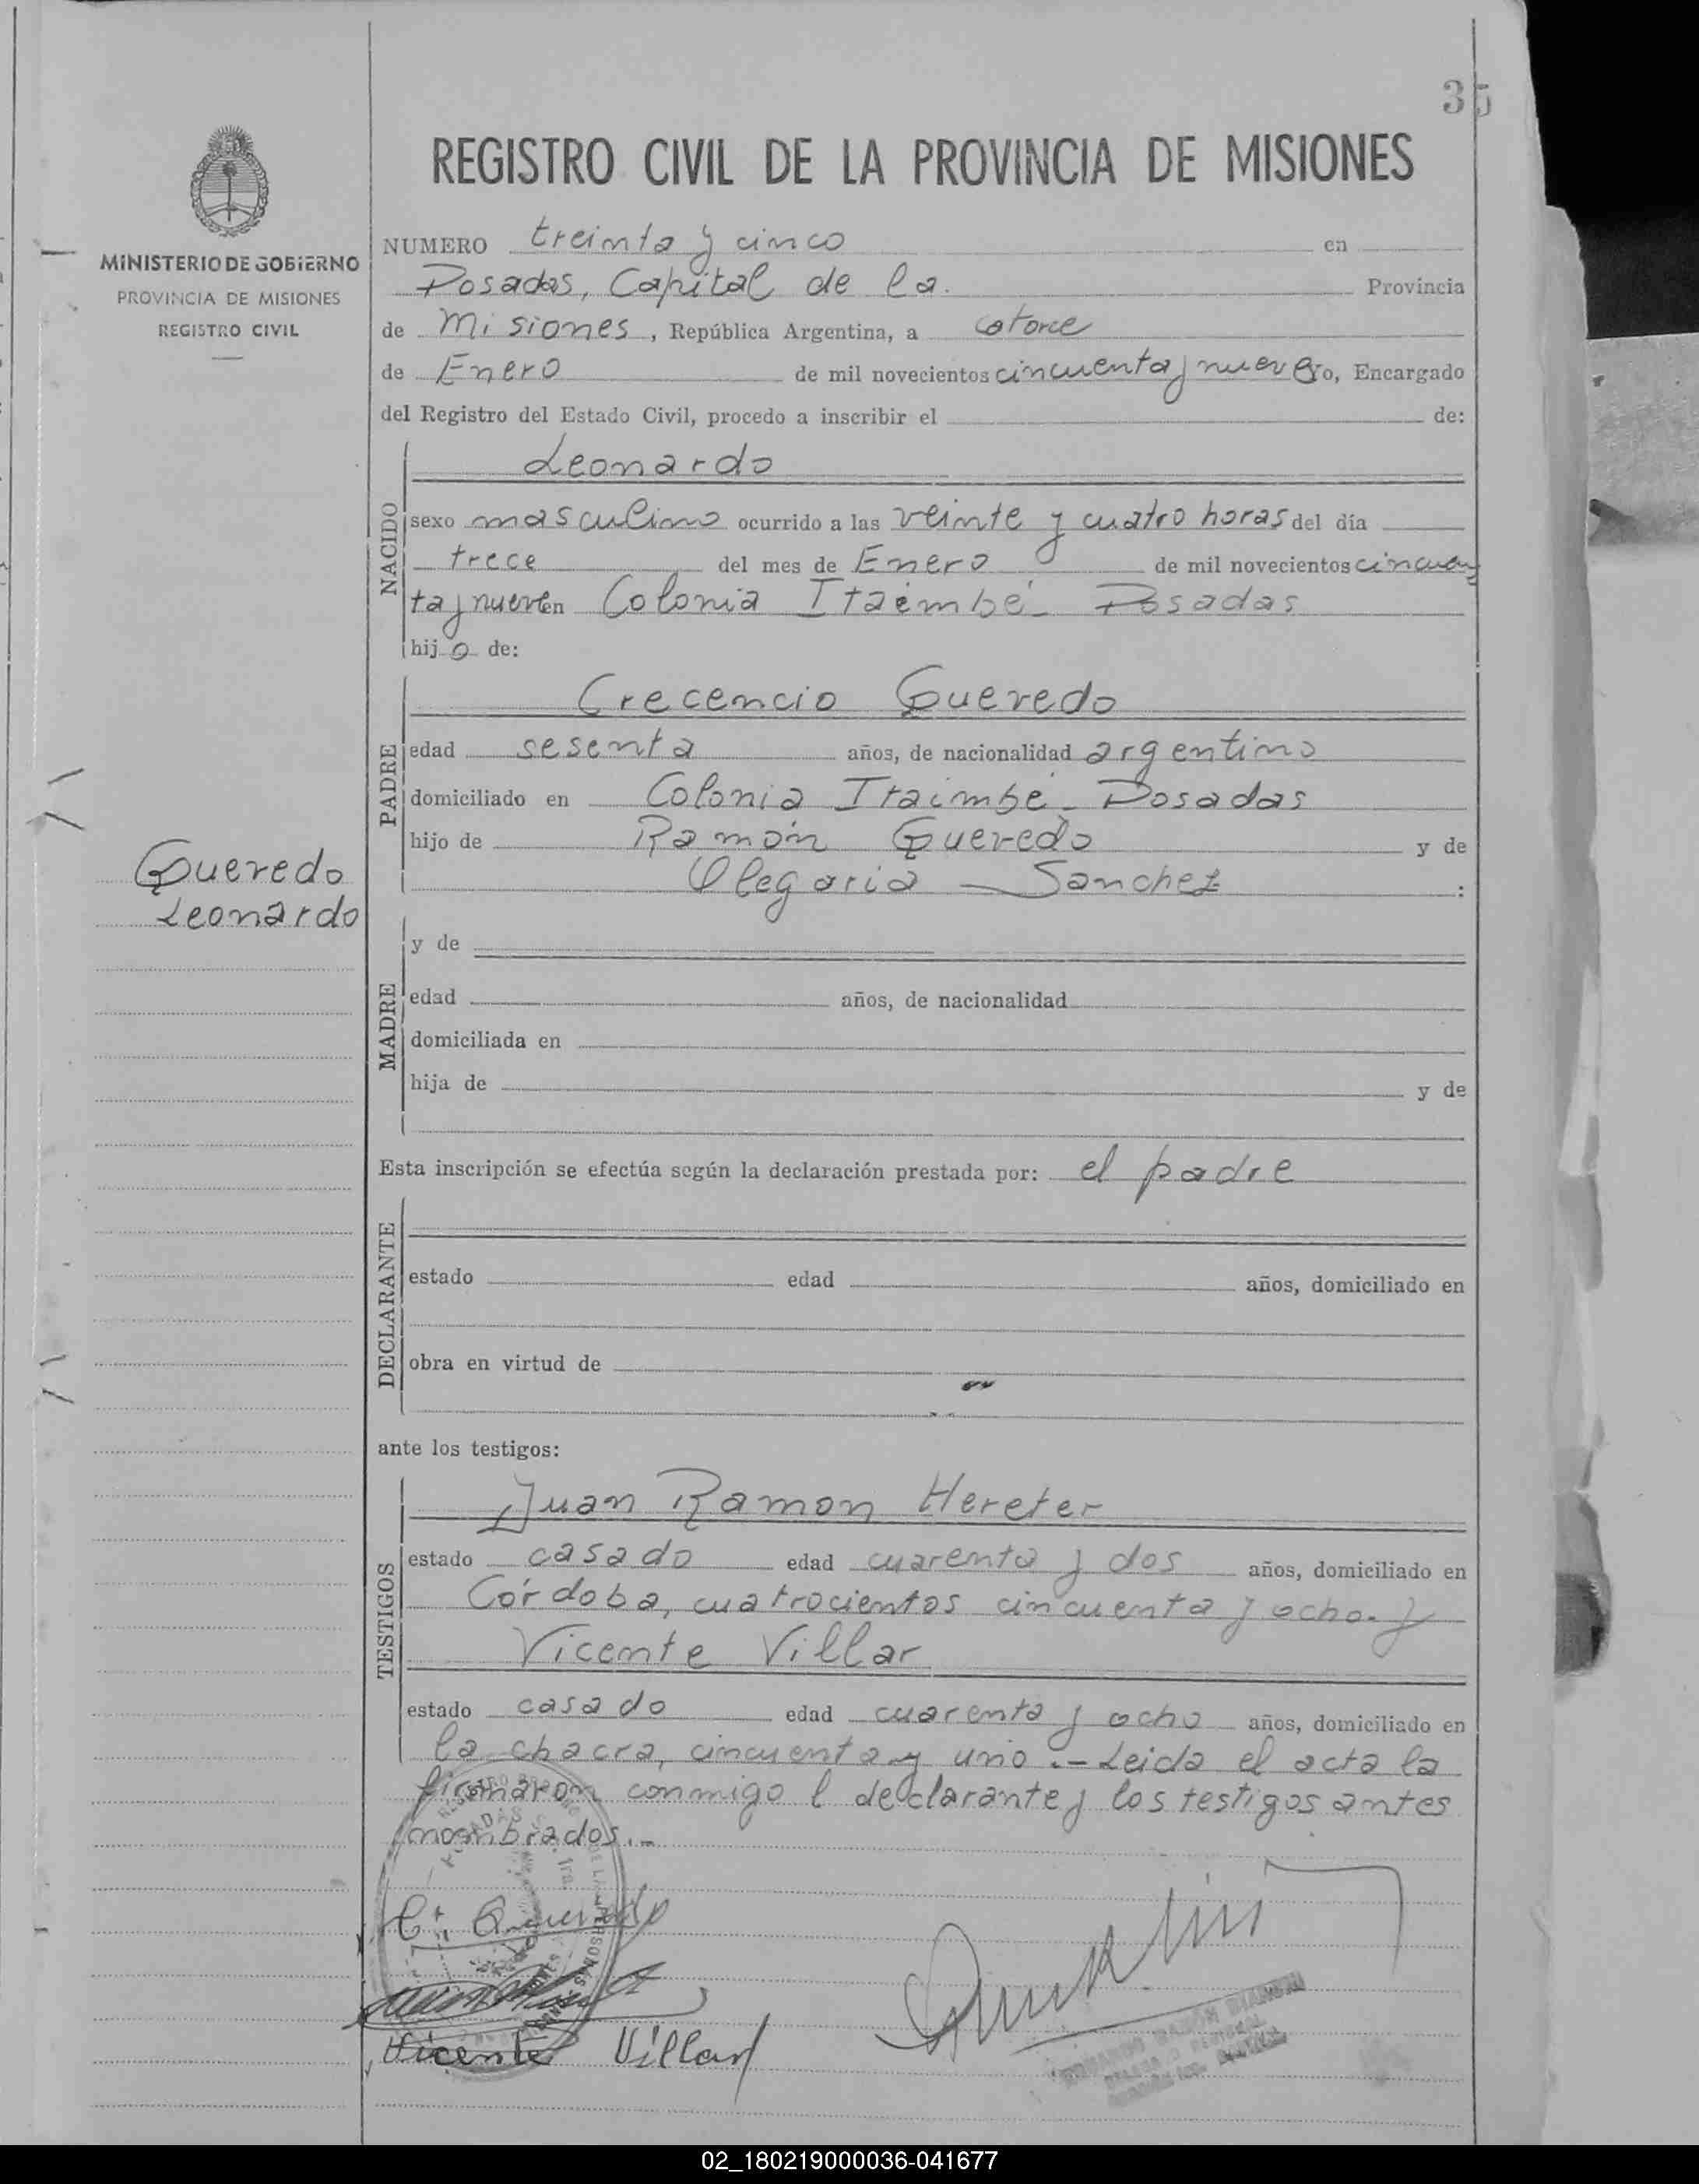 35
REGISTRO CIVIL DE LA PROVINCIA DE MISIONES
MINISTERIO DE GOBIERNO
PROVINCIA DE MISIONES
REGISTRO CIVIL
NUMERO treinta y cinco en
Posadas, Capital de la. Provincia
de Misiones, República Argentina, a catorce
de Enero de mil novecientos cincuenta y nueve yo, Encargado
del Registro del Estado Civil, procedo a inscribir el de:
NACIDO
Leonardo
sexo masculino ocurrido a las veinte y cuatro horas del día
trece del mes de Enero de mil novecientos cincuen
ta y nueve en Colonia Itaembé - Posadas
hijo de:
PADRE
Crecencio Quevedo
edad sesenta años, de nacionalidad argentino
domiciliado en Colonia Itaimbé - Posadas
hijo de Ramón Quevedo y de
Olegaria Sanchez :
Quevedo
Leonardo
MADRE
y de
edad años, de nacionalidad
domiciliada en
hija de y de
Esta inscripción se efectúa según la declaración prestada por: el padre
DECLARANTE
estado edad años, domiciliado en
obra en virtud de
ante los testigos:
TESTIGOS
Juan Ramon Hereter
estado casado edad cuarenta y dos años, domiciliado en
Córdoba, cuatrocientos cincuenta y ocho. y
Vicente Villar
estado casado edad cuarenta y ocho años, domiciliado en
la chacra, cincuenta y uno.- Leida el acta la
firmaron conmigo l declarante y los testigos antes
nombrados.-
C. Quevedo
Vicente Villar
02_180219000036-041677